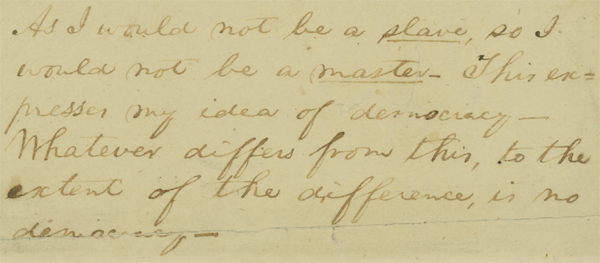 As I would not be a slave, so I
would not be a master— This ex=
presses my idea of democracy—
Whatever differs from this, to the
extent of the difference, is no
democracy—